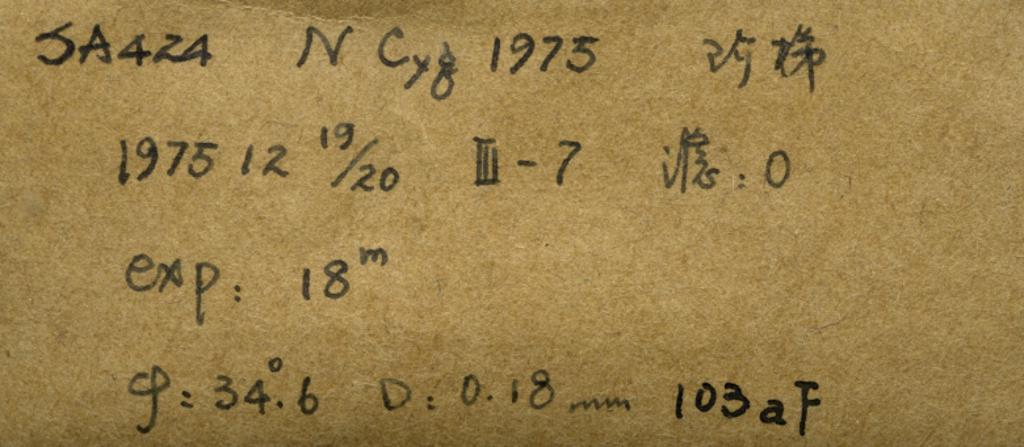 SA424 N Cyg 1975 阶梯
1975 12 19/20 Ⅲ-7 滤:0
exp: 18ᵐ
φ:34°.6 D:0.18mm 103aF